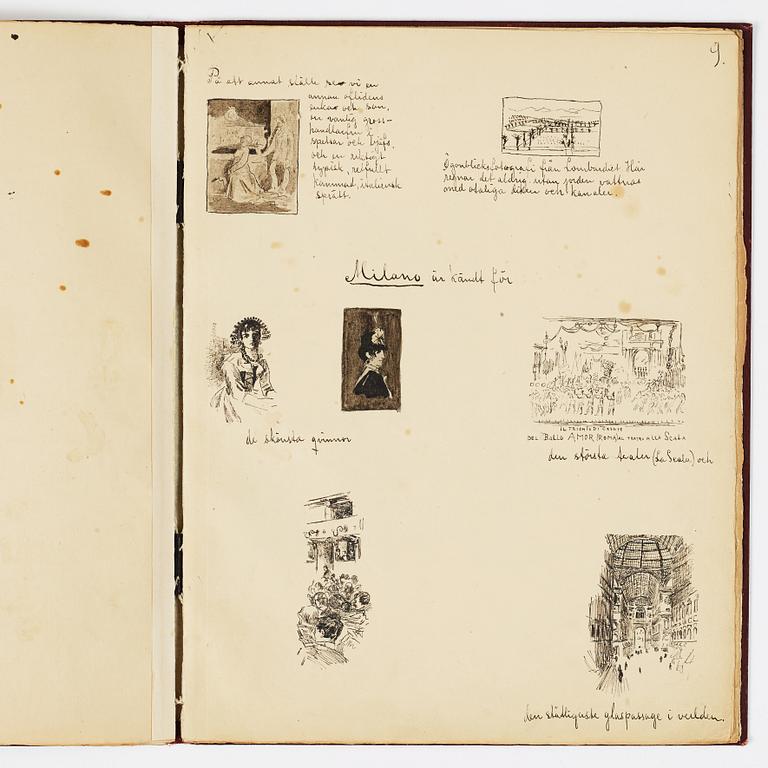 9.
På ett annat ställe se vi en
annan
enkar och son,
en vanlig gross-
handlarfru i
spetsar och
och en riktigt
typisk,
kammad, italiensk
sprätt.
Ögonblicksfotografi från Lombardiet. Här
regnar det aldrig, utan jorden vattnas
med otaliga diken och kanaler.
Milano är kändt för
de skönsta qvinnor
DEL BALLO AMOR (ROMA) AL TEATRO ALLA SCALA
den största teater (La Scala) och
den ståtligaste glaspassage i verlden.